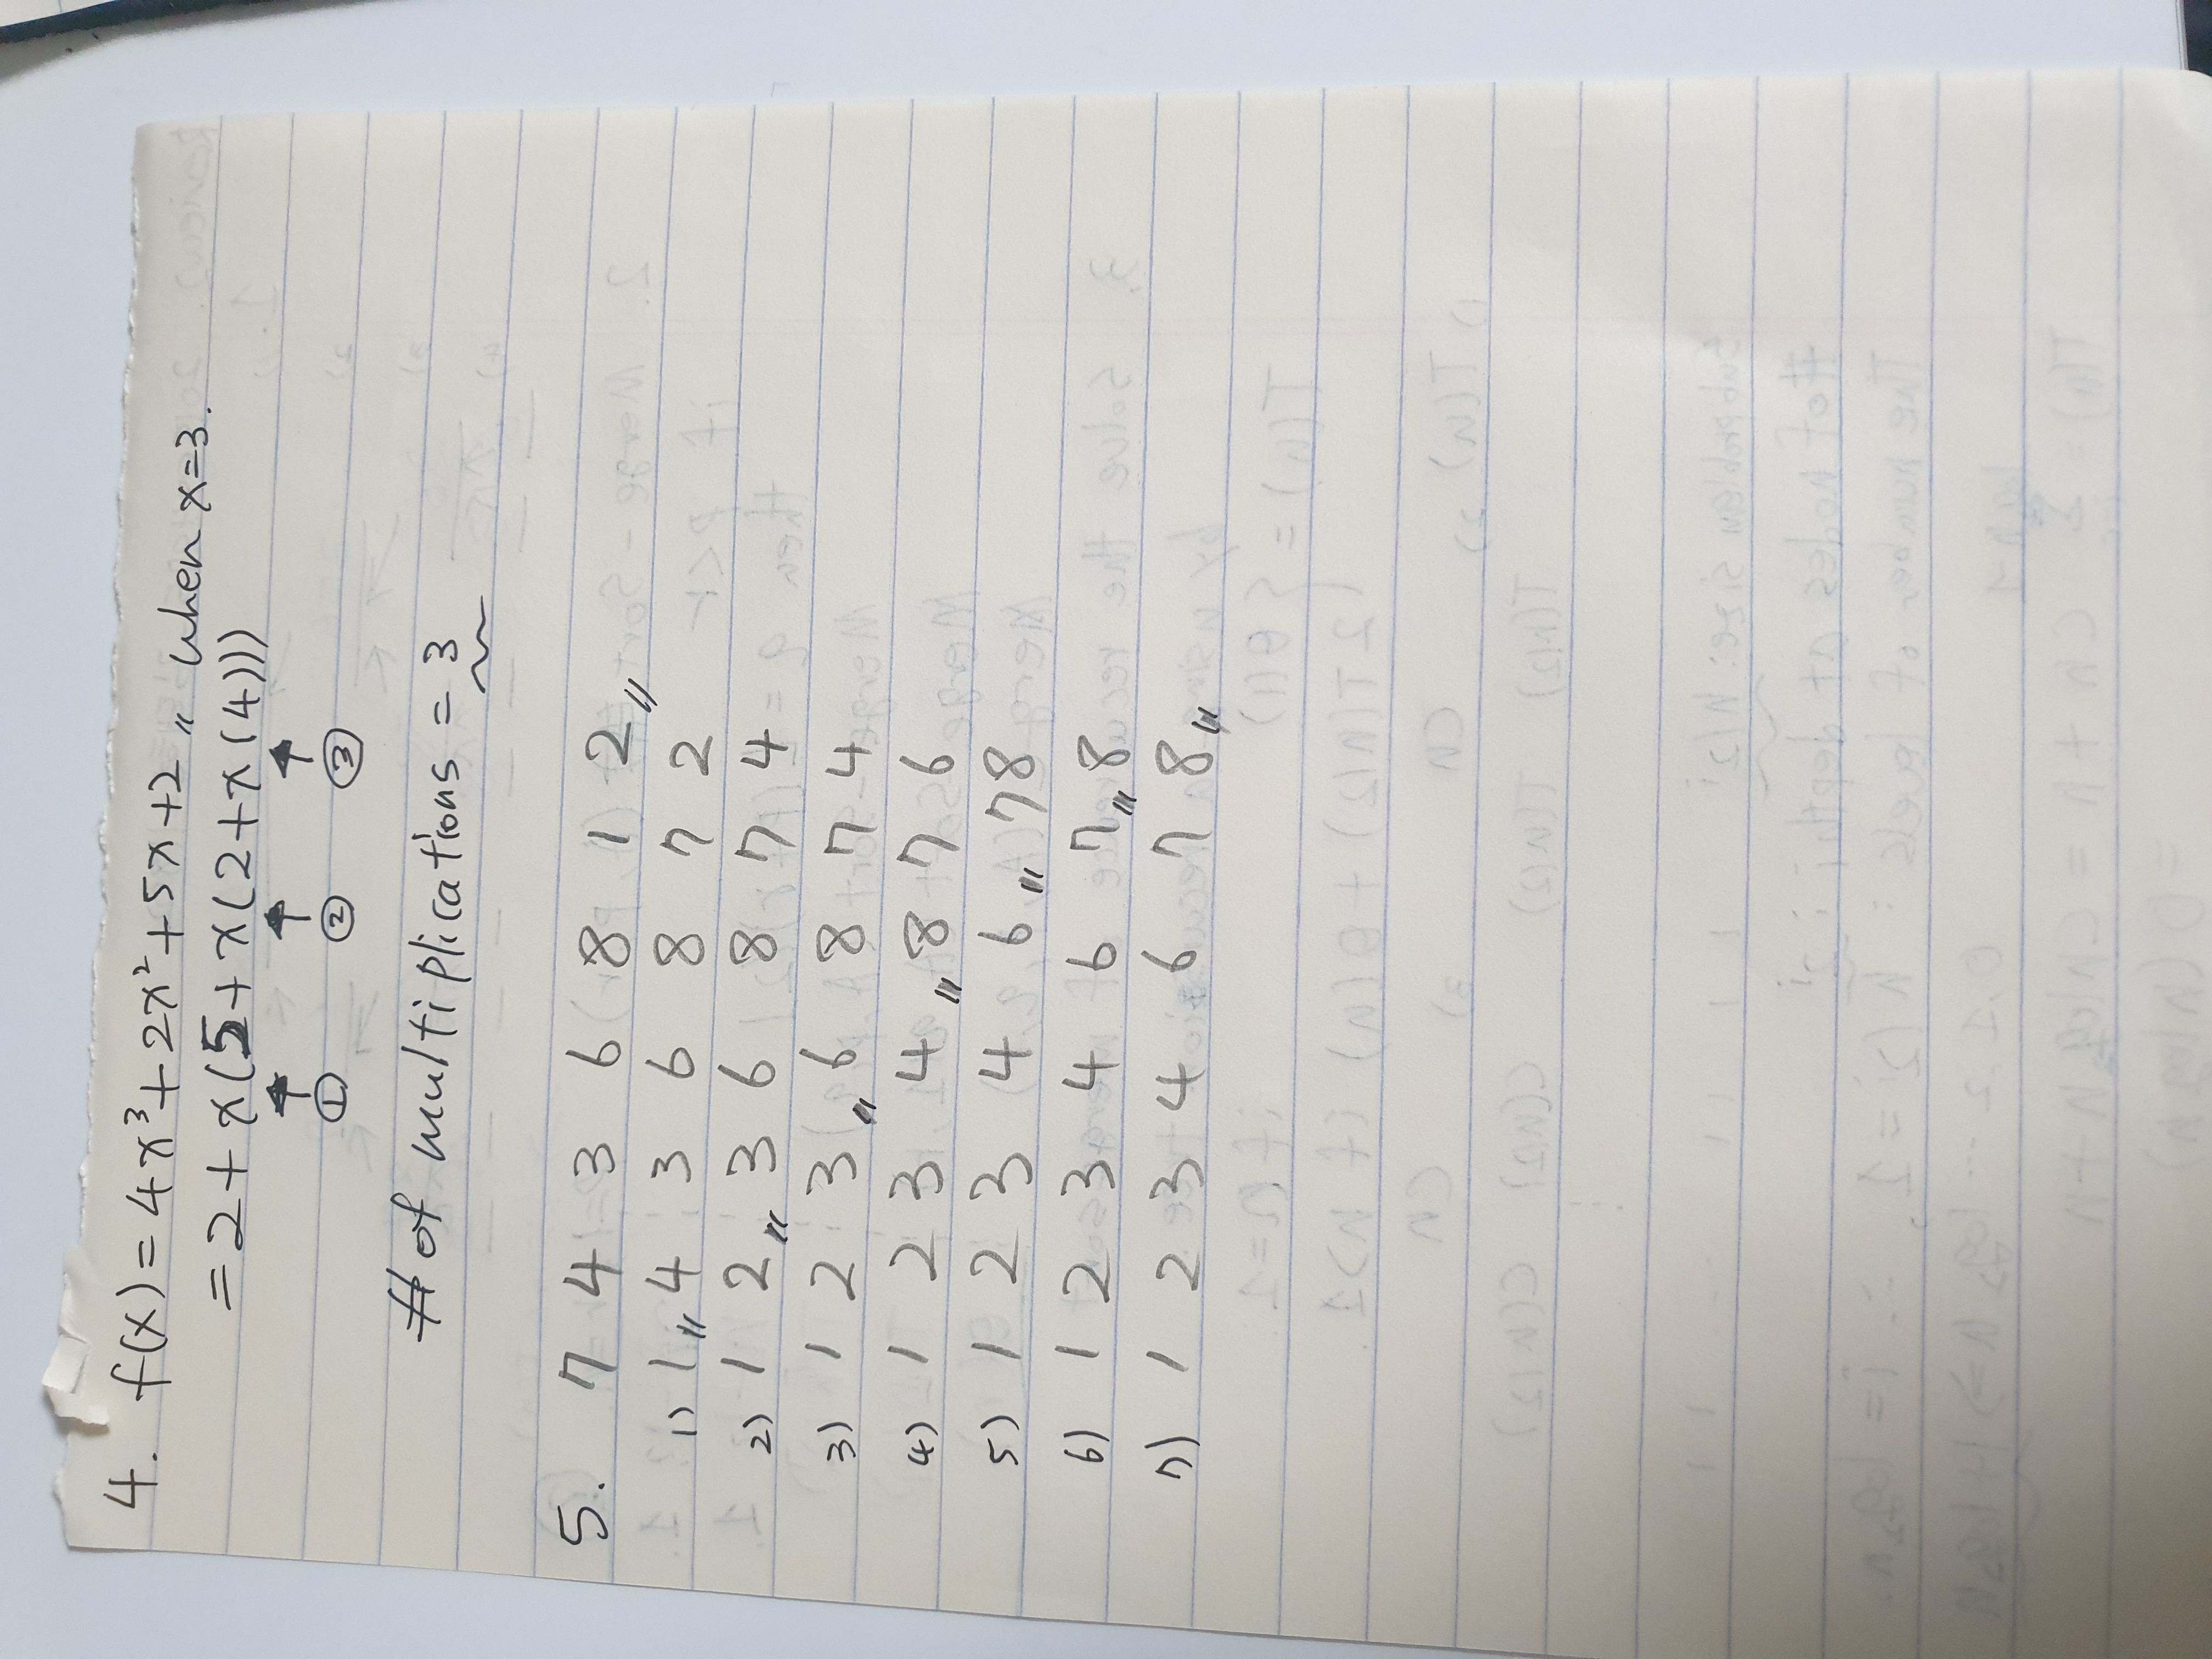 4. f(x) = 4x³ + 2x² + 5x + 2 〃 when x=3.
= 2 + x(5 + x(2 + x(4)))
① ② ③
# of multiplications = 3
5. 7 4 3 6 8 1 2 〃
1) 1 〃 4 3 6 8 7 2
2) 1 2 〃 3 6 8 7 4
3) 1 2 3 〃 6 8 7 4
4) 1 2 3 4 〃 8 7 6
5) 1 2 3 4 6 〃 7 8
6) 1 2 3 4 6 7 〃 8
7) 1 2 3 4 6 7 8 〃